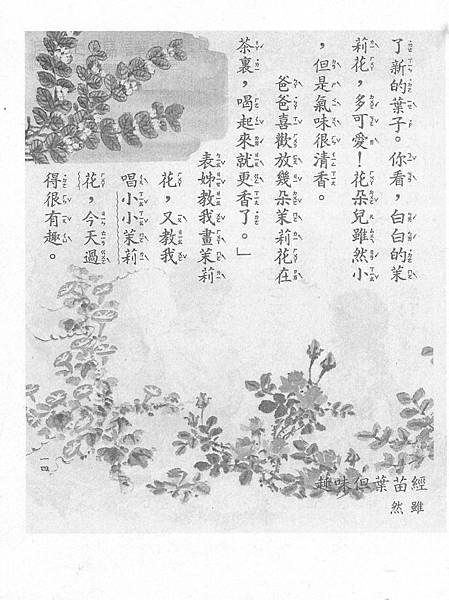 了新的葉子。你看，白白的茉
莉花，多可愛！花朵兒雖然小
，但是氣味很清香。
爸爸喜歡放幾朵茉莉花在
茶裏，喝起來就更香了。」
表姊教我畫茉莉
花，又教我
唱小小茉莉
花，今天過
得很有趣。
經苗葉但味趣
雖然
一四